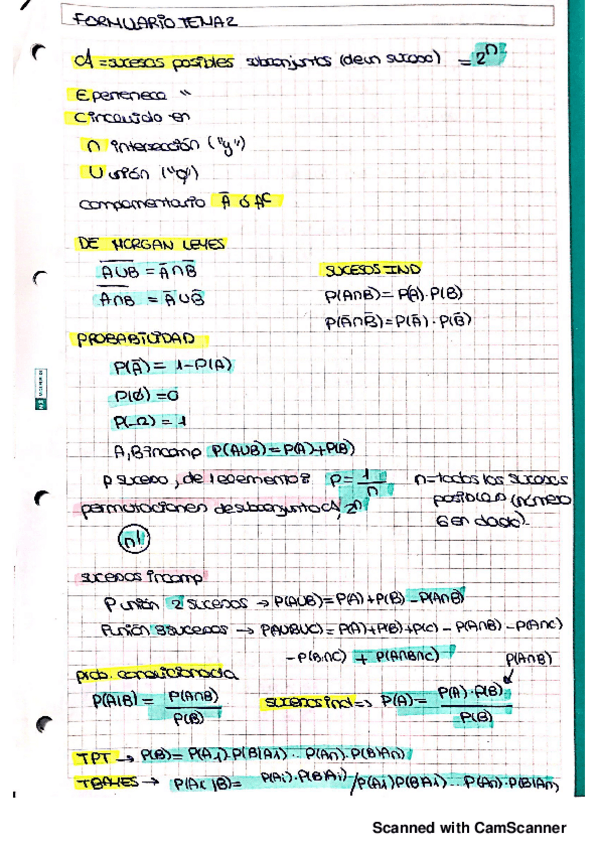 FORMULARIO TEMA 2
A = sucesos posibles subconjuntos (de un suceso) = 2^n
E pertenece "
C incluido en
∩ intersección ("y")
U unión ("o")
complementario Ā ó A^C
DE MORGAN LEYES
\overline{A∪B} = Ā∩B̄
\overline{A∩B} = Ā∪B̄
SUCESOS IND
P(A∩B) = P(A)·P(B)
P(Ā∩B̄) = P(Ā)·P(B̄)
PROBABILIDAD
P(Ā) = 1-P(A)
P(∅) = 0
P(Ω) = 1
A, B incomp P(A∪B) = P(A)+P(B)
p suceso, de 1 elemento: P = 1/n
n = todos los sucesos
posibles (número
6 en dado).
permutaciones de subconjunto A, 2^n
n!
sucesos incomp
P unión 2 sucesos → P(A∪B) = P(A)+P(B) -P(A∩B)
P unión 3 sucesos → P(AUBUC) = P(A)+P(B)+P(C) - P(A∩B) -P(A∩C)
-P(B∩C) + P(A∩B∩C)
prob. condicionada
P(A|B) = P(A∩B) / P(B)
sucesos ind => P(A) = P(A)·P(B) / P(B)
P(A∩B)
TPT → P(B) = P(A1)·P(B|A1)... P(An)·P(B|An)
TBAYES → P(Ai|B) = P(Ai)·P(B|Ai) / P(A1)P(B|A1)... P(An)·P(B|An)
Scanned with CamScanner